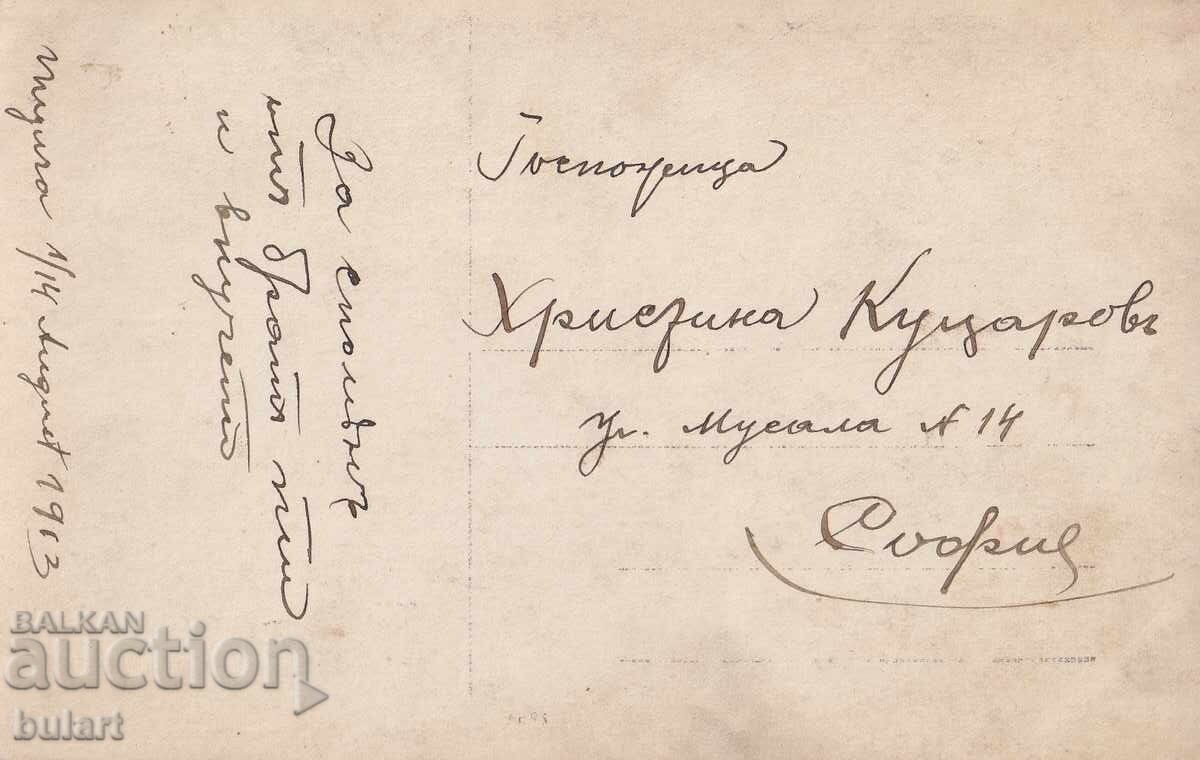 За споменъ
отъ братъ ти
и внучето
1/14 Августъ 1913
Госпожица
Христина Куцаровъ
ул. Мусала № 14
София
BALKAN
auction
bulart